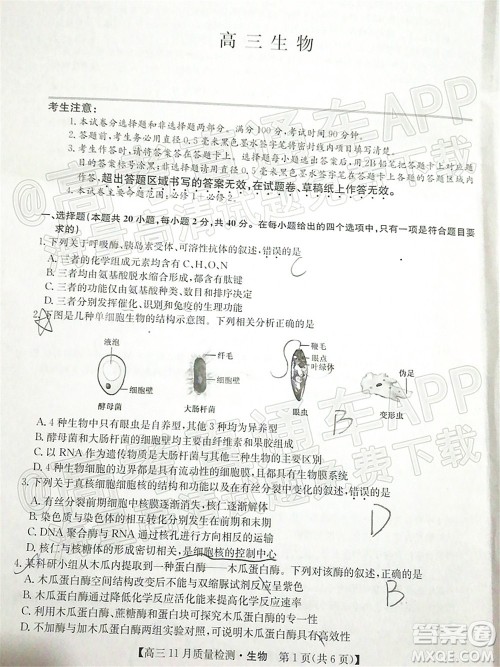 高三生物
考生注意：
1. 本试卷分选择题和非选择题两部分。满分100分，考试时间90分钟。
2. 答题前，考生务必用直径0.5毫米黑色墨水签字笔将密封线内项目填写清楚。
3. 考生作答时，请将答案答在答题卡上。选择题每小题选出答案后，用2B铅笔把答题卡上对应题
目的答案标号涂黑；非选择题请用直径0.5毫米黑色墨水签字笔在答题卡上各题的答题区域内
作答，超出答题区域书写的答案无效，在试题卷、草稿纸上作答无效。
4. 本卷命题范围：必修1，必修2。
一、选择题（本题共20小题，每小题2分，共40分。在每小题给出的四个选项中，只有一项是符合题目要
求的）
1. 下列关于呼吸酶、胰岛素受体、可溶性抗体的叙述，错误的是
C
A. 三者的化学组成元素均含有C、H、O、N
B. 三者均由氨基酸脱水缩合形成，都含有肽键
C. 三者的功能仅由氨基酸的种类、数目和排列顺序决定
D. 三者分别发挥催化、识别和免疫的生理功能
2. 下图是几种单细胞生物的结构示意图。下列相关分析正确的是
液泡
细胞壁
酵母菌
纤毛
细胞壁
大肠杆菌
鞭毛
眼点
叶绿体
眼虫
伪足
变形虫
B
A. 4种生物中只有眼虫是自养型，其他3种均为异养型
B. 酵母菌和大肠杆菌的细胞壁均要用纤维素酶和果胶酶去除
C. 以RNA作为遗传物质是大肠杆菌与其他三种生物的最大区别
D. 4种生物细胞的边界都是具有流动性的生物膜，且都含有生物膜系统
3. 下列关于真核细胞的细胞核的结构和功能的叙述，错误的是
D
A. 在有丝分裂前期的细胞中核膜消失，核仁逐渐解体
B. 染色质与染色体的形态不同，在有丝分裂中可发生周期性变化
C. DNA聚合酶与RNA可通过核孔进行定向运输
D. 核仁与核糖体的形成相关，是细胞核的控制中心
4. 某科研小组从木瓜内提取到一种蛋白酶——木瓜蛋白酶。下列对该酶的叙述，正确的是
B
A. 木瓜蛋白酶空间结构改变后不能与双缩脲试剂反应呈紫色
B. 木瓜蛋白酶通过降低化学反应活化能来提高反应速率
C. 利用木瓜蛋白酶、蔗糖酶和木瓜蛋白可探究酶的专一性
D. 用与加木瓜蛋白酶两种方法处理木瓜蛋白可探究木瓜蛋白酶具有高效性
【高三11月质量检测·生物 第1页（共6页）】